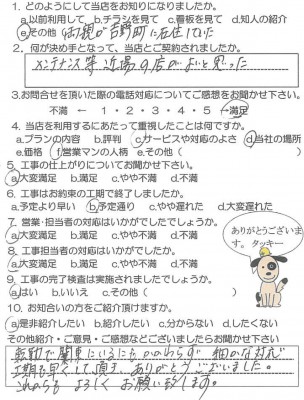 1. どのようにして当店をお知りになりましたか。
a.以前利用して b.チラシを見て c.看板を見て d.知人の紹介
eその他(両親が吉野町に在住していた
2. 何が決め手となって、当店とご契約されましたか。
メンテナンス等近場の店がよいと思った
3.お問合せを頂いた際の電話対応についてご感想をお聞かせ下さい。
不満 ← 1・2・3・4・5 →満足
4. 当店を利用するにあたって重視したことは何ですか。
a.プランの内容 b.評判 cサービスや対応のよさ d当社の場所
e.価格 f営業マンの人柄 e.その他( )
5. 工事の仕上がりについてお聞かせ下さい。
a大変満足 b.満足 c.やや不満 d.不満
6. 工事はお約束の工期で終了しましたか。
a.予定より早い b.予定通り c.やや遅れた d.大変遅れた
7. 営業・担当者の対応はいかがでしたでしょうか。
a大変満足 b.満足 c.やや不満 d.不満
8. 工事担当者の対応はいかがでしたか。
a大変満足 b.満足 c.やや不満 d.不満
9. 工事の完了検査は実施されましたでしょうか。
aはい b.いいえ c.その他( )
ありがとうございます。タッキー
10. お知合いの方をご紹介頂けますか。
a是非紹介したい b.紹介したい c.分からない d.したくない
その他紹介・ご意見・ご感想などございましたらお聞かせ下さい
転勤で関東にいるにもかかわらず 細かな対応
工期も早くして頂き、ありがとうございました。
これからも よろしく お願い致します。